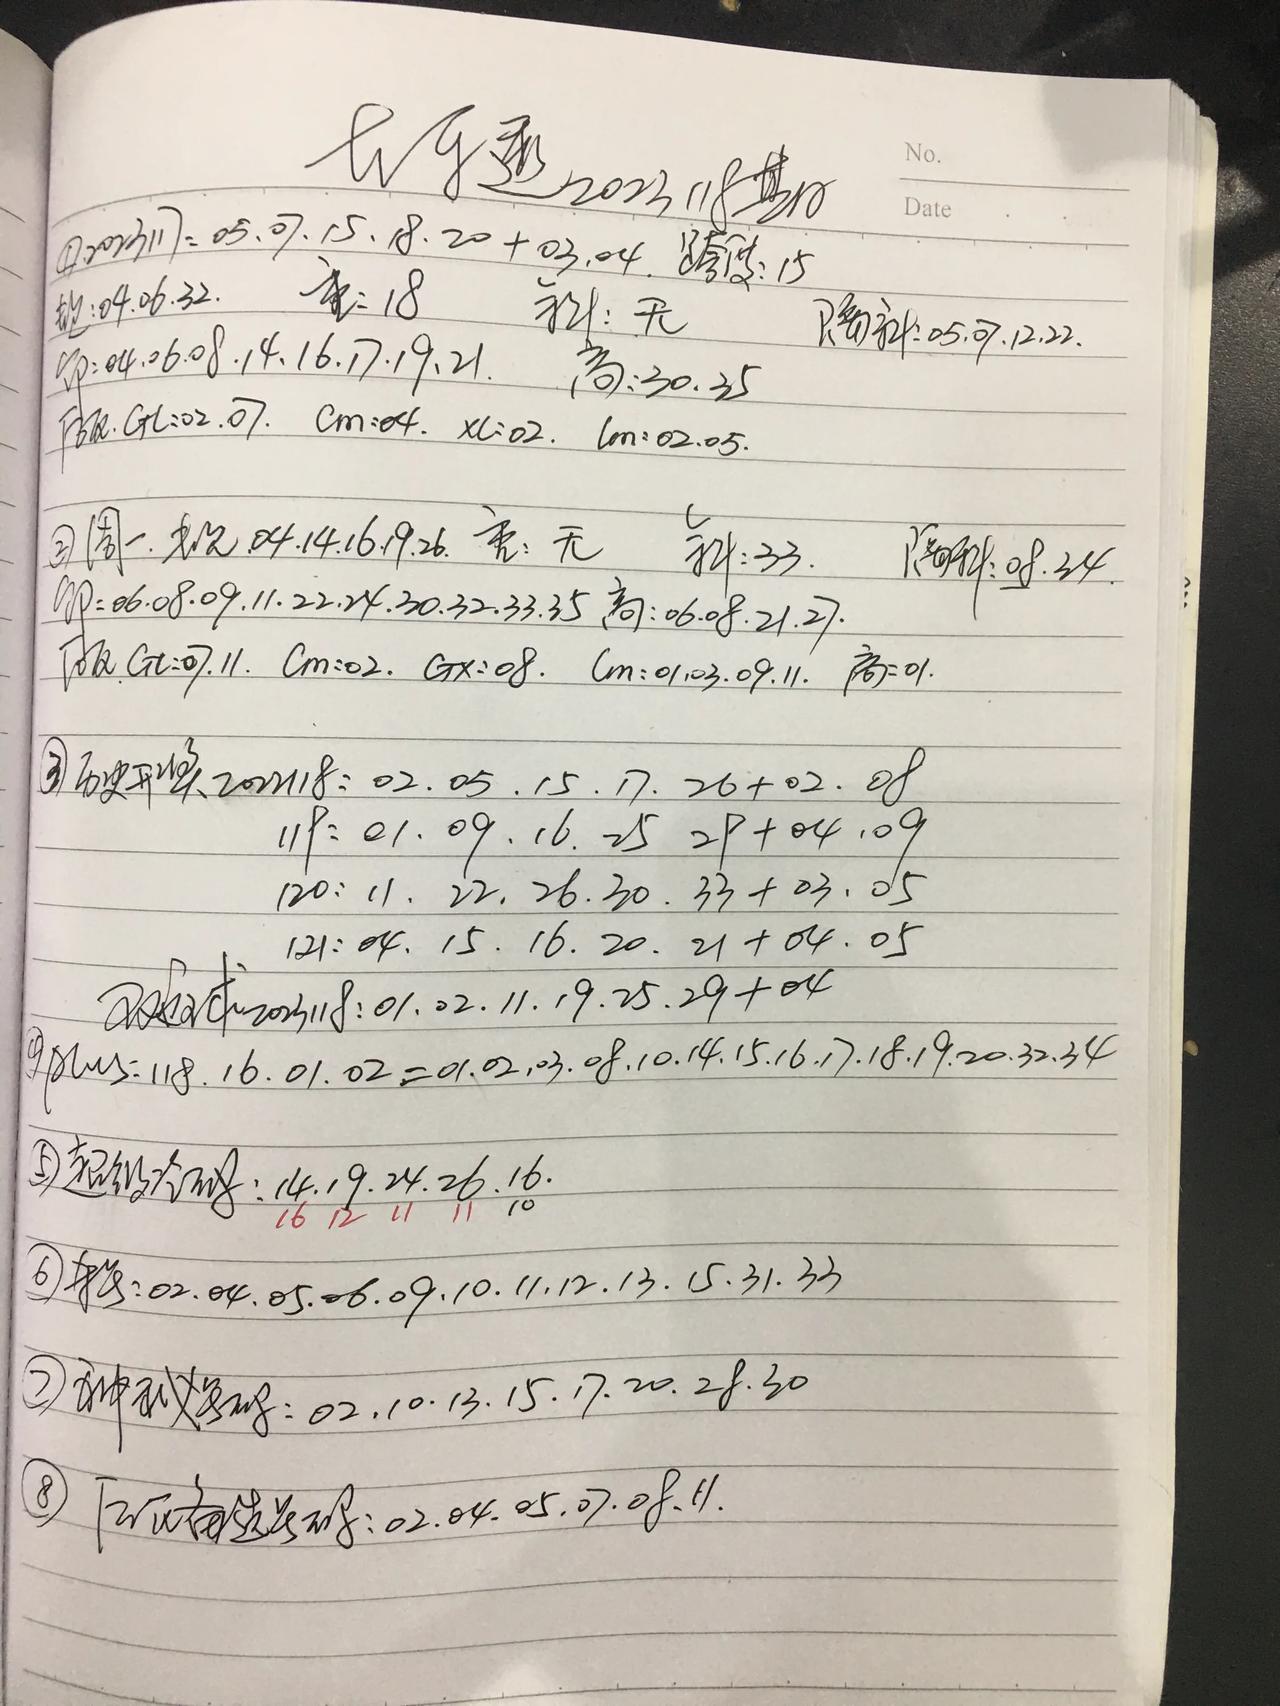 大乐透2023118其10
No.
Date
①2023117=05.07.15.18.20+03.04. 跨度:15
:04.06.32. 重:18 斜:无 隔斜:05.07.12.22.
:04.06.08.14.16.17.19.21. 高:30.35
下段.GL:02.07. Cm:04. XL:02. Lm:02.05.
②周一.04.14.16.19.26. 重:无 斜:33. 隔斜:08.34.
=06.08.09.11.22.24.30.32.33.35 高:06.08.21.27.
下段.GL:07.11. Cm:02. GX:08. Cm:01.03.09.11. 高=01.
③历史开奖2022118:02.05.15.17.26+02.08
119:01.09.16.25 29+04.09
120:11.22.26.30.33+03.05
121:04.15.16.20.21+04.05
2023118:01.02.11.19.25.29+04
④plus:118.16.01.02=01.02.03.08.10.14.15.16.17.18.19.20.32.34
⑤超级冷码:14.19.24.26.16.
16 12 11 11 10
⑥:02.04.05.06.09.10.11.12.13.15.31.33
⑦号码:02.10.13.15.17.20.28.30
⑧下区备选号码:02.04.05.07.08.11.